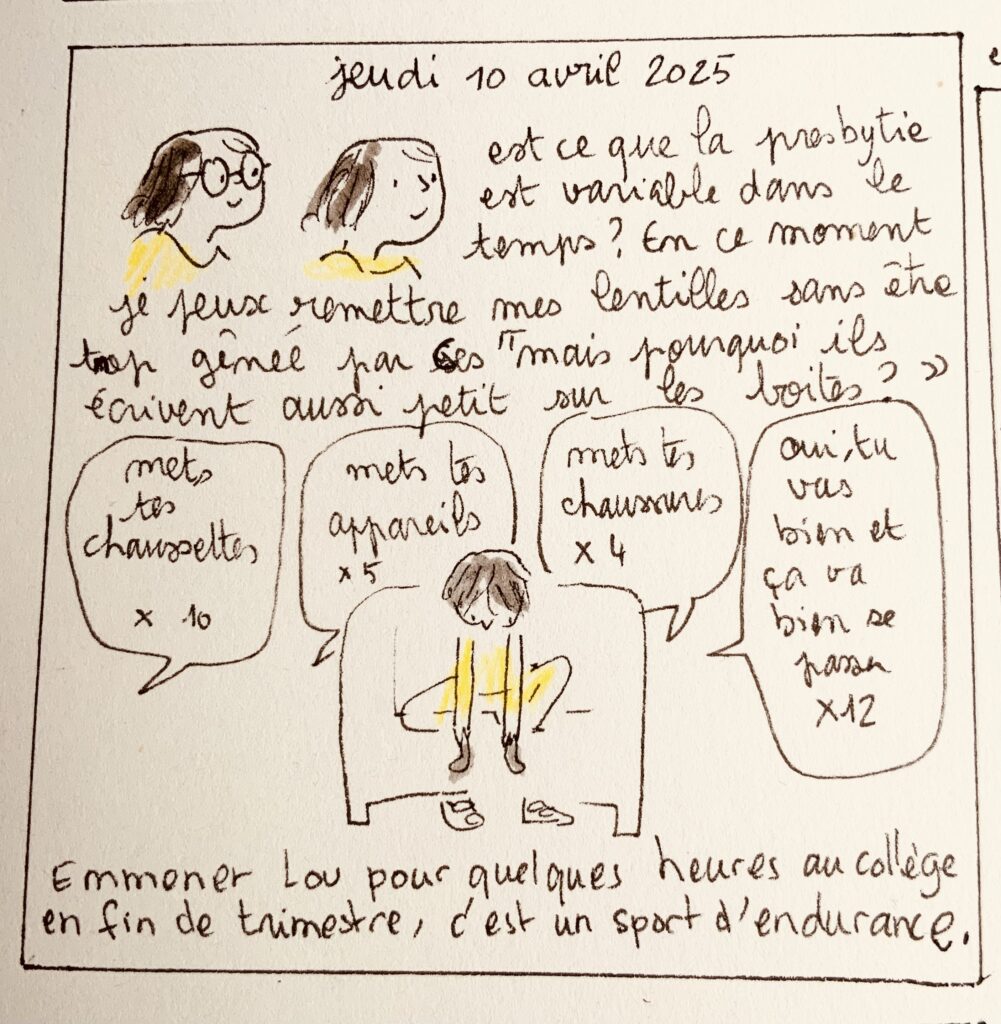 jeudi 10 avril 2025
est ce que la presbytie
est variable dans le
temps? En ce moment
je peux remettre mes lentilles sans être
trop gênée par les "mais pourquoi ils
écrivent aussi petit sur les boites? »
mets
tes
chaussettes
x 10
mets tes
appareils
x 5
mets tes
chaussures
x 4
oui, tu
vas
bien et
ça va
bien se
passer
x12
Emmener Lou pour quelques heures au collège
en fin de trimestre, c'est un sport d'endurance.